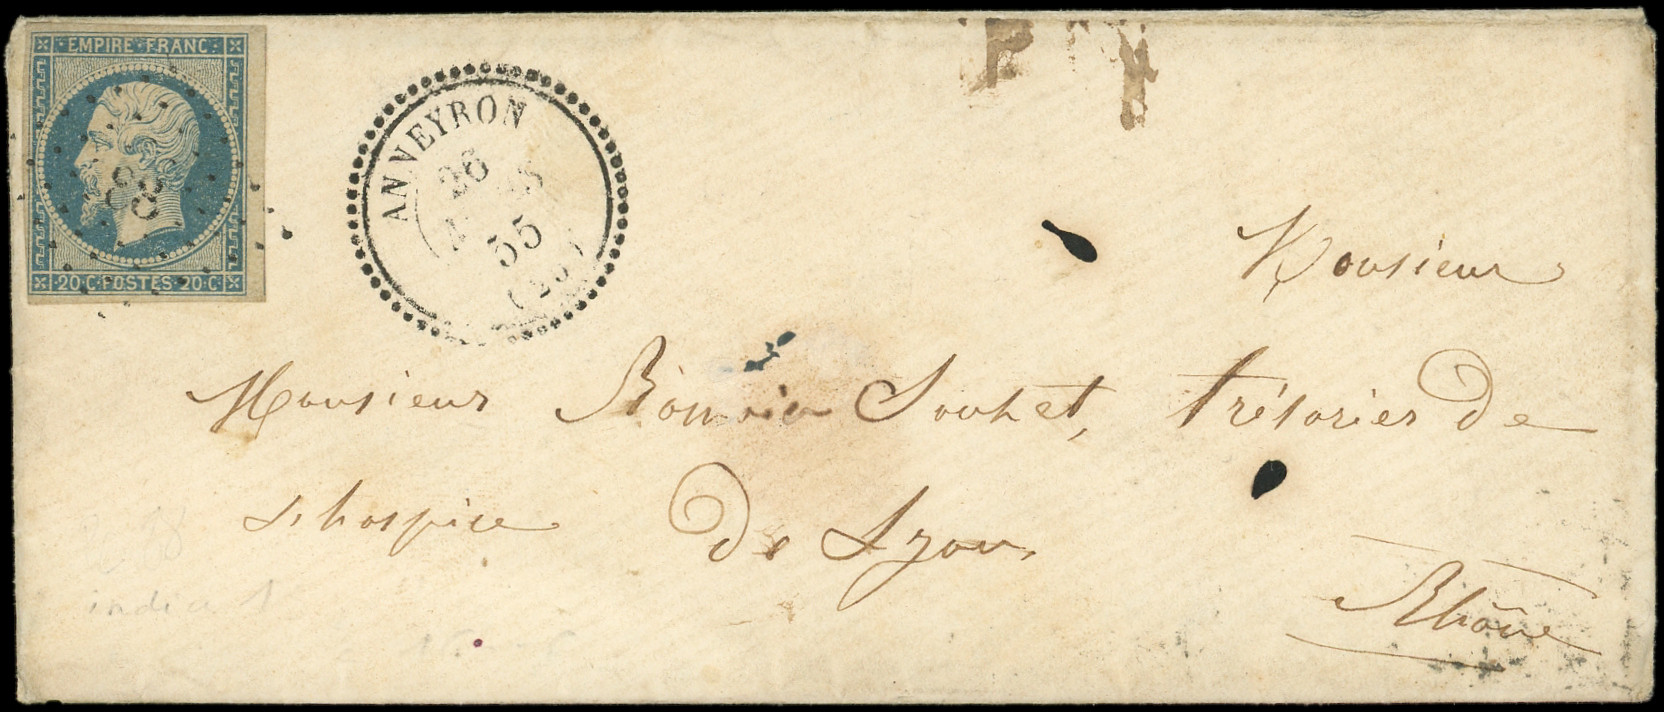 EMPIRE FRANC.
20.C.POSTES.20.C.
ANNEYRON
26
55
(25)
Monsieur
Monsieur Souhet, trésorier de
l'hospice de Lyon,
Rhône
india 1